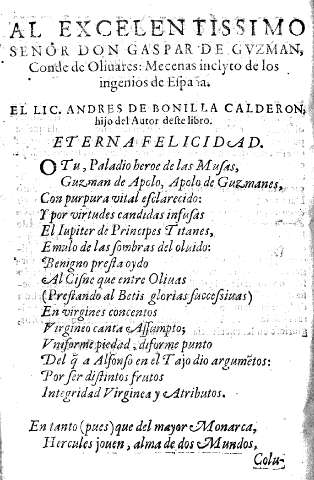 AL EXCELENTISSIMO
SEÑOR DON GASPAR DE GVZMAN,
Conde de Oliuares: Mecenas inclyto de los
ingenios de España.
EL LIC. ANDRES DE BONILLA CALDERON,
hijo del Autor deste libro.
ETERNA FELICIDAD.
O Tu, Paladio heroe de las Musas,
Guzman de Apolo, Apolo de Guzmanes,
Con purpura vital esclarecido:
Y por virtudes candidas infusas
El Iupiter de Principes Titanes,
Emulo de las sombras del oluido:
Benigno presta oydo
Al Cisne que entre Oliuas
(Prestando al Betis glorias successiuas)
En virgines concentos
Virgineo canta Assumpto;
Vniforme piedad, diforme punto
Del q̃ a Alfonso en el Tajo dio argumẽtos:
Por ser distintos frutos
Integridad Virginea y Atributos.
En tanto (pues) que del mayor Monarca,
Hercules jouen, alma de dos Mundos,
Colu-